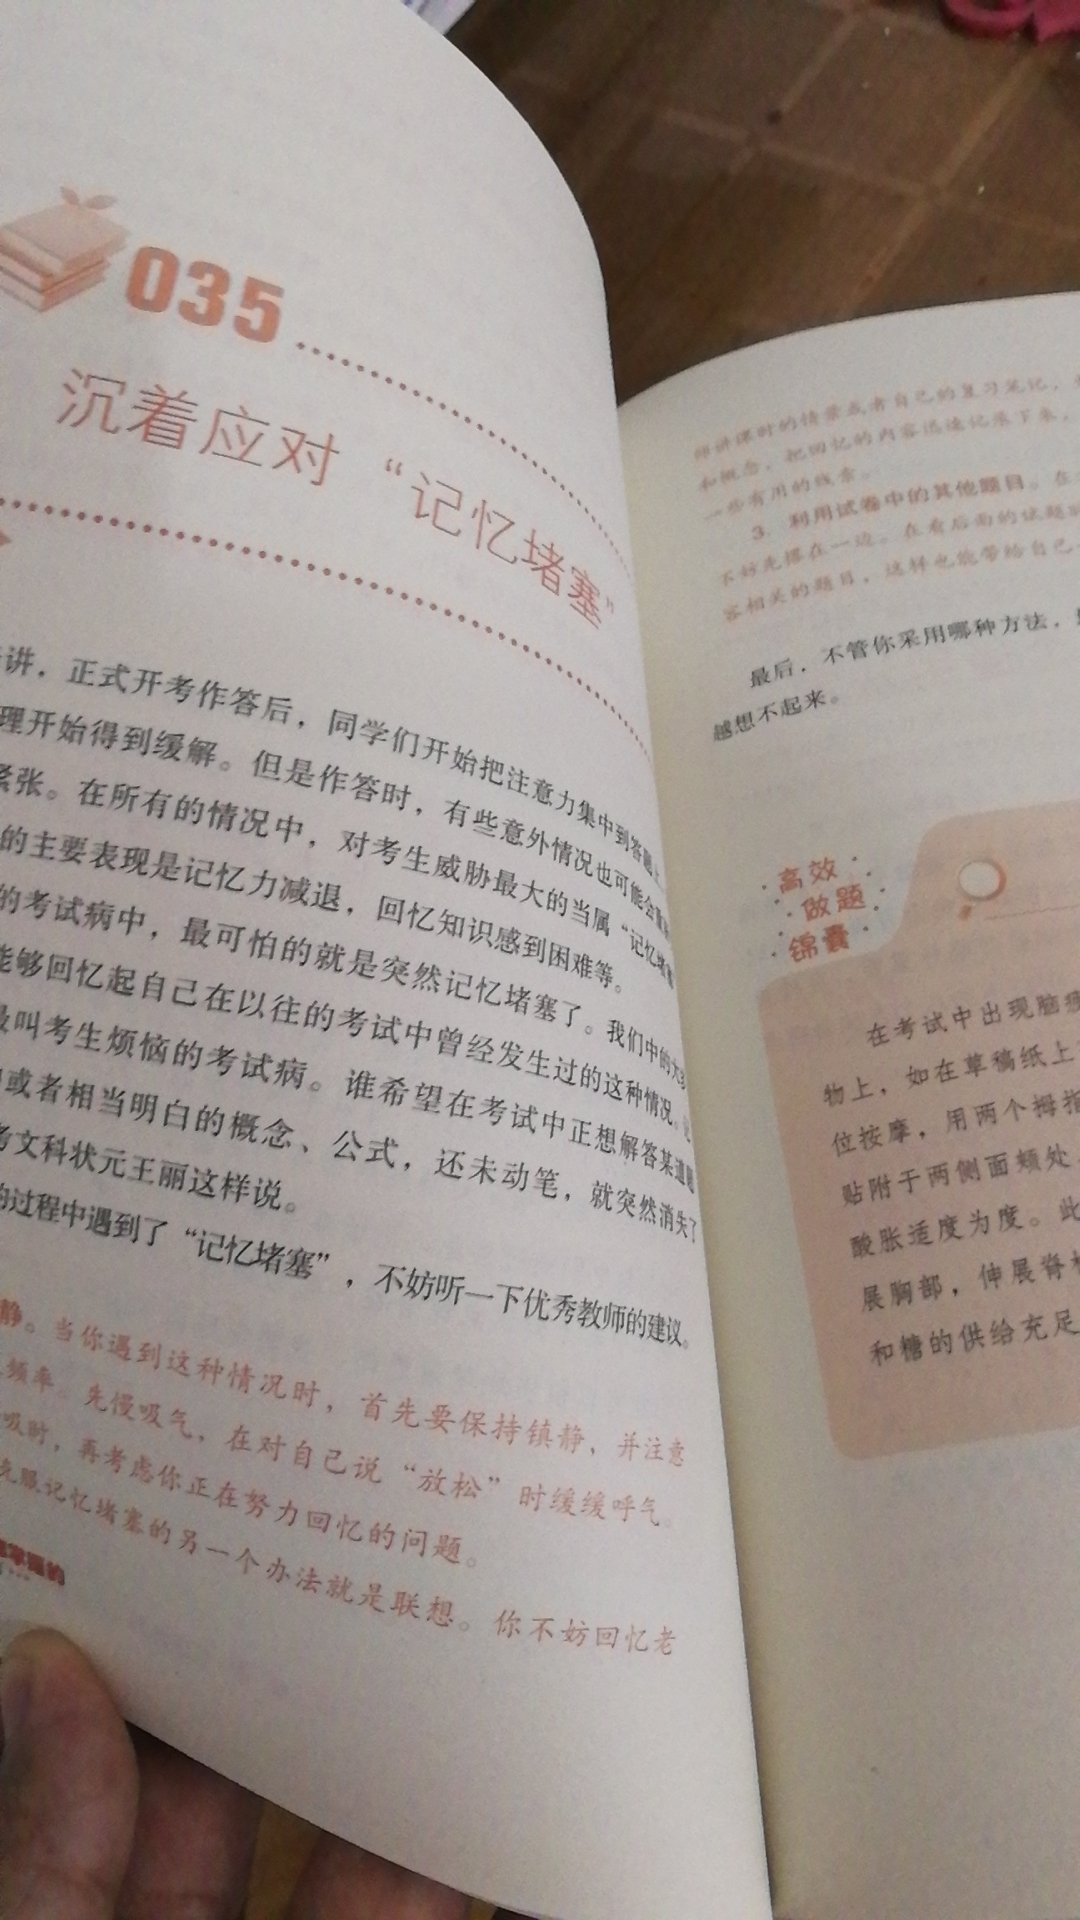 035
沉着应对“记忆堵塞”
讲，正式开考作答后，同学们开始把注意力集中到答题上
理开始得到缓解。但是作答时，有些意外情况也可能会
紧张。在所有的情况中，对考生威胁最大的当属“记忆堵塞
的主要表现是记忆力减退，回忆知识感到困难等。
的考试病中，最可怕的就是突然记忆堵塞了。我们中的大多
能够回忆起自己在以往的考试中曾经发生过的这种情况。
最叫考生烦恼的考试病。谁希望在考试中正想解答某道题
或者相当明白的概念、公式，还未动笔，就突然消失了
考文科状元王丽这样说。
的过程中遇到了“记忆堵塞”，不妨听一下优秀教师的建议。
静。当你遇到这种情况时，首先要保持镇静，并注意
频率。先慢吸气，在对自己说“放松”时缓缓呼气。
吸时，再考虑你正在努力回忆的问题。
克服记忆堵塞的另一个办法就是联想。你不妨回忆老
师讲课时的情景或者自己的复习笔记，
和概念，把回忆的内容迅速记录下来，
一些有用的线索。
3. 利用试卷中的其他题目。在
不妨先摆在一边。在看后面的试题时
容相关的题目，这样也能带给自己
最后，不管你采用哪种方法，
越想不起来。
高效
做题
锦囊
在考试中出现脑疲
物上，如在草稿纸上
位按摩，用两个拇指
贴附于两侧面颊处，
酸胀适度为度。此
展胸部，伸展脊柱
和糖的供给充足